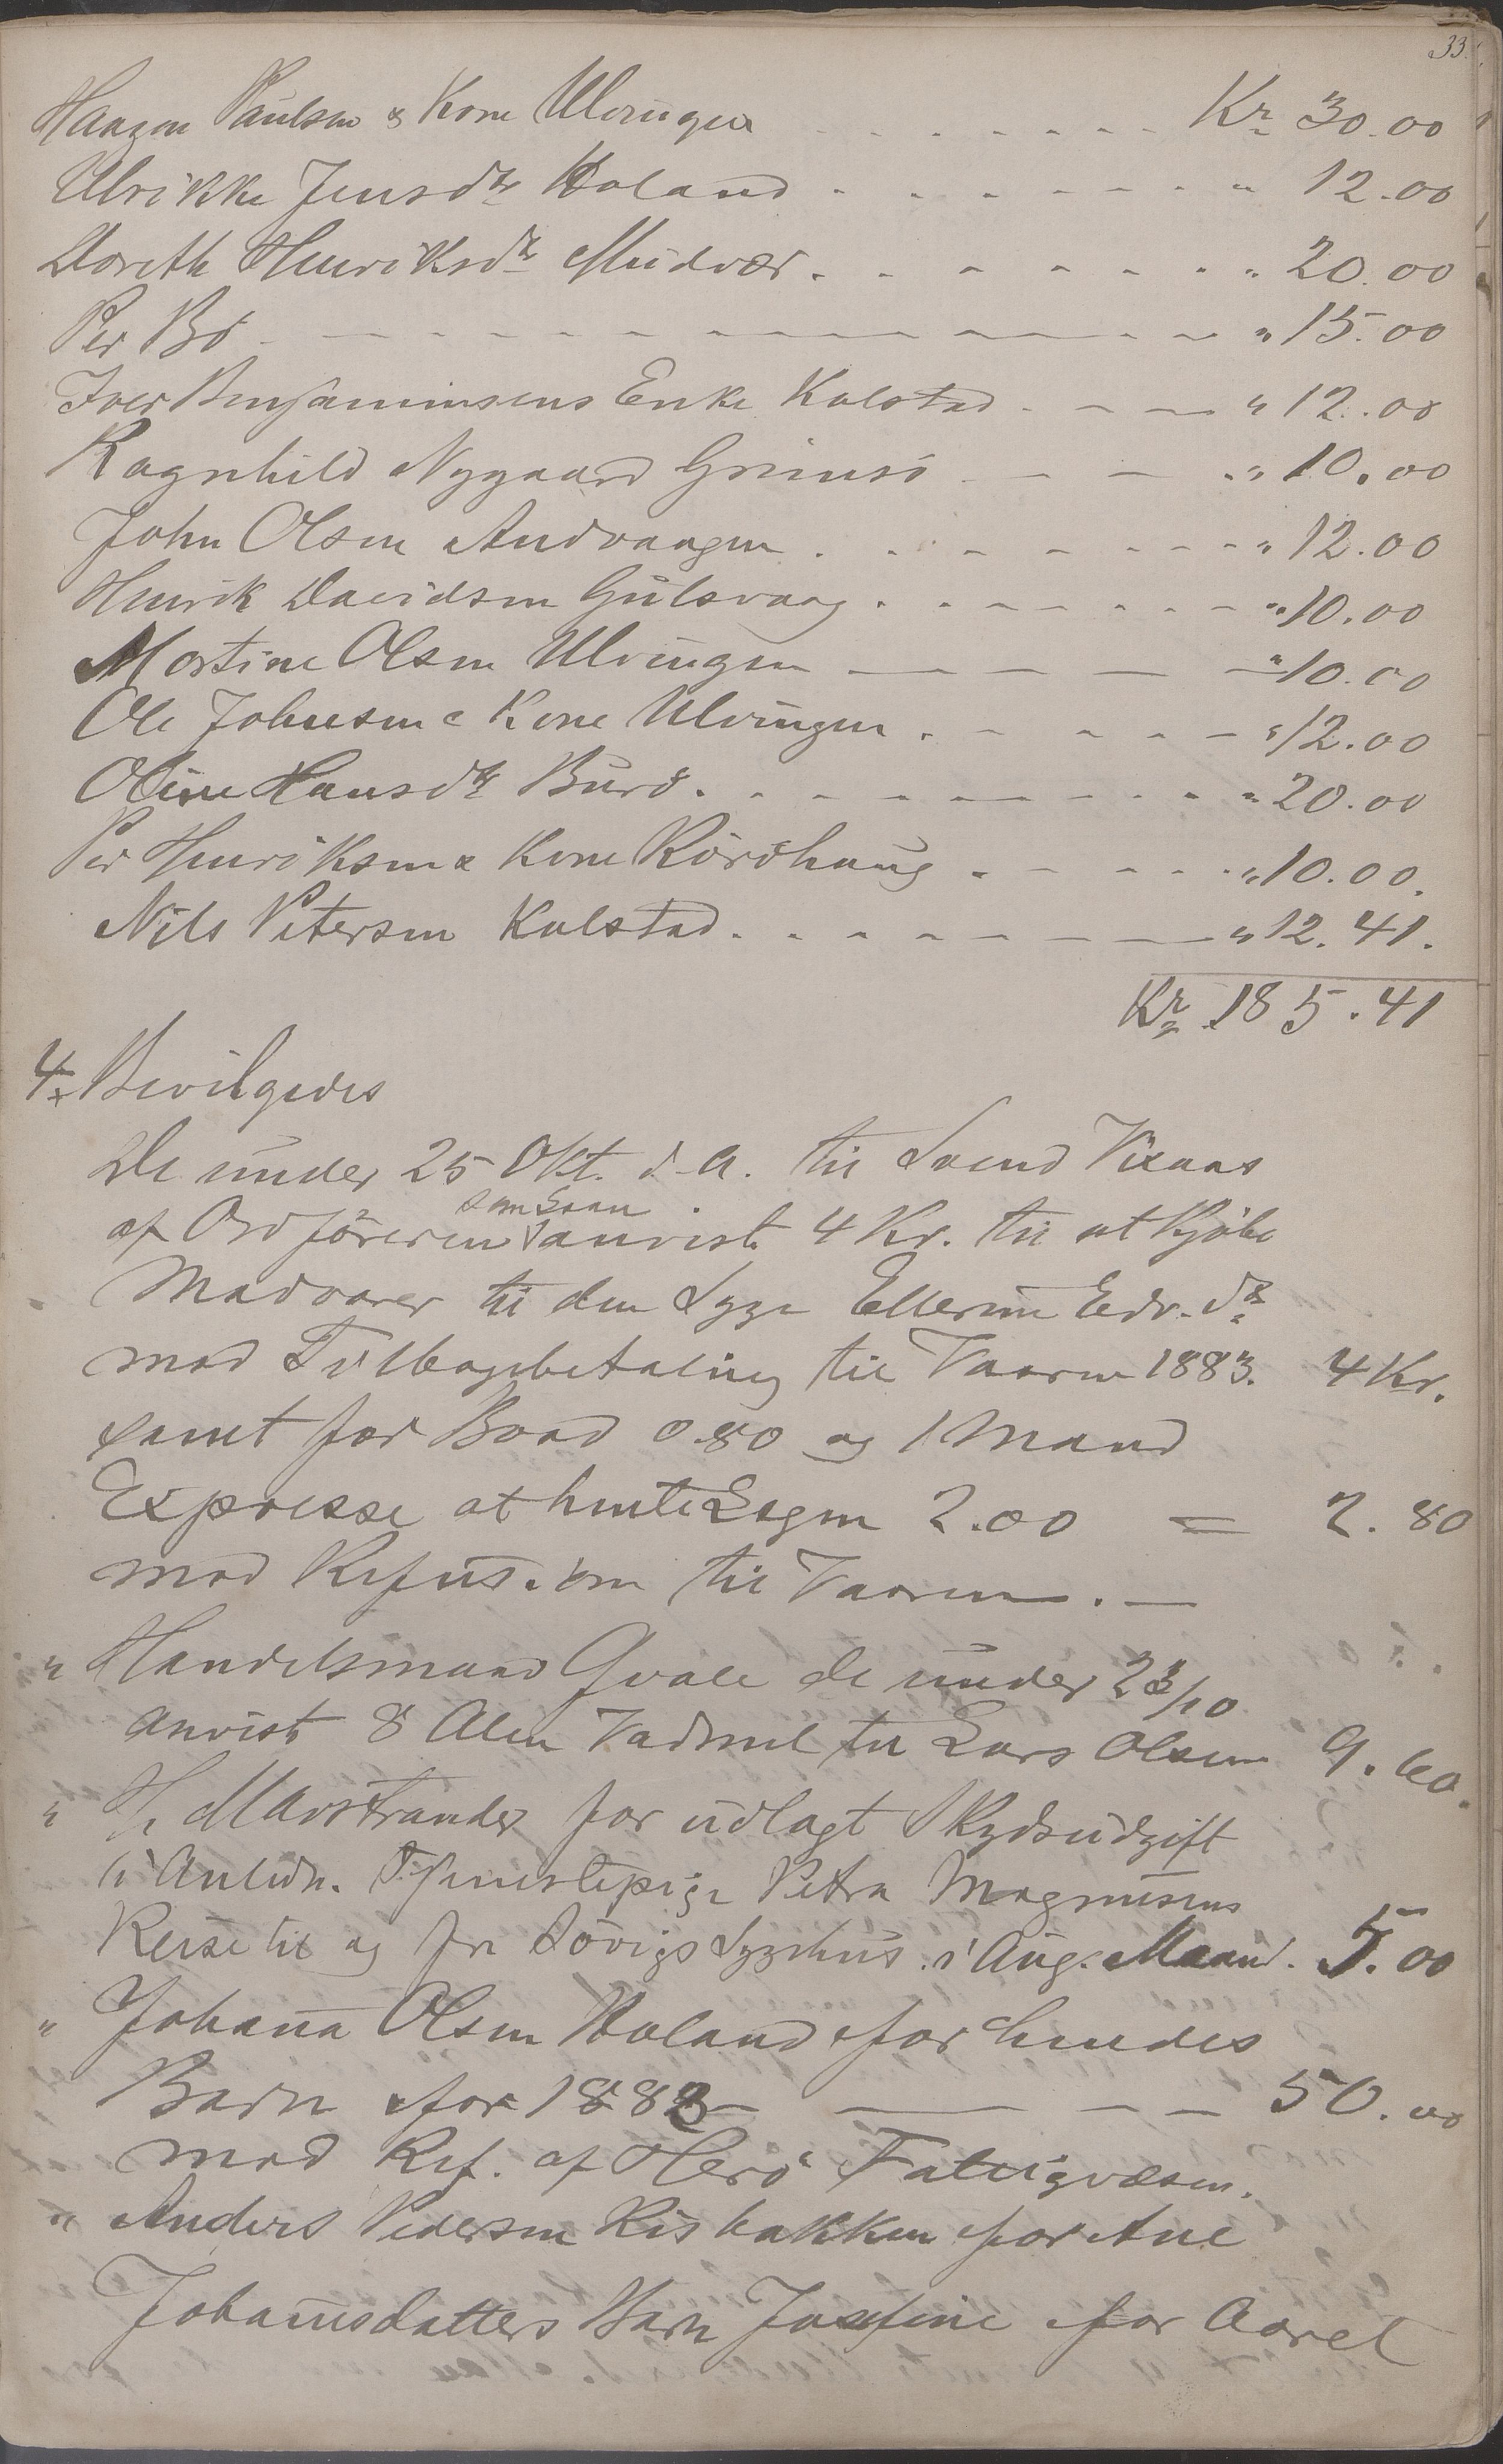 33.
Haagen Paulsen & Kone Ulvingen . . . . . . . Kr 30.00
Ulrikke Jensdtr Holand . . . . . . . " 12.00
Doreth Henriksdtr Mudvær . . . . . . . " 20.00
Per Bö - - - - - - - - - - " 15.00
Iver Benjaminsens Enke Kulstad . - - - " 12.00
Ragnhild Nygaard Grimsö - - - " 10.00
John Olsen Andvaagen . . . - - - - - " 12.00
Henrik Davidsen Gulsvaag . . - - - . . - " 10.00
Mortine Olsen Ulvingen - - - - - " 10.00
Ole Johnsen & Kone Ulvingen . - - - - - " 12.00
Oline Hansdtr Burö . . - - - - - . . " 20.00
Per Henriksen & Kone Röröhaug . - - - . . " 10.00.
Nils Petersen Kulstad . . . - - - - - " 12.41.
Kr 185.41
4 Bevilgedes
De under 25 Okt. d.A. til Svend Vixaas
som Laan
af Ordföreren anvist 4 Kr. til at Kjöbe
Madvarer til den Syge Ellerine Edv.dtr
mod Tilbagebetaling til Vaaren 1883. 4 Kr.
samt for Baad 0.80 og 1 Mand
Expresse at hente Lægen 2.00 = 2.80
mod Refusion til Vaaren. -
" Handelsmand Qvale de under 23/10
anvist 8 Alen Vadmel til Lars Olsen 9.60.
" Hr Marstrander for udlagt Skydsudgift
i Anledn. Tjenestepige Petra Magnusens
Reise til og fra Sövigs Sygehus i Aug. Maaned. 5.00
" Johanna Olsen Holand for hendes
Barn for 1883 - - - - 50.00
mod Ref. af Herö Fattigvæsen.
" Anders Pedersen Risbakken for Ane
Johannsdatters Barn Josefine for Aaret